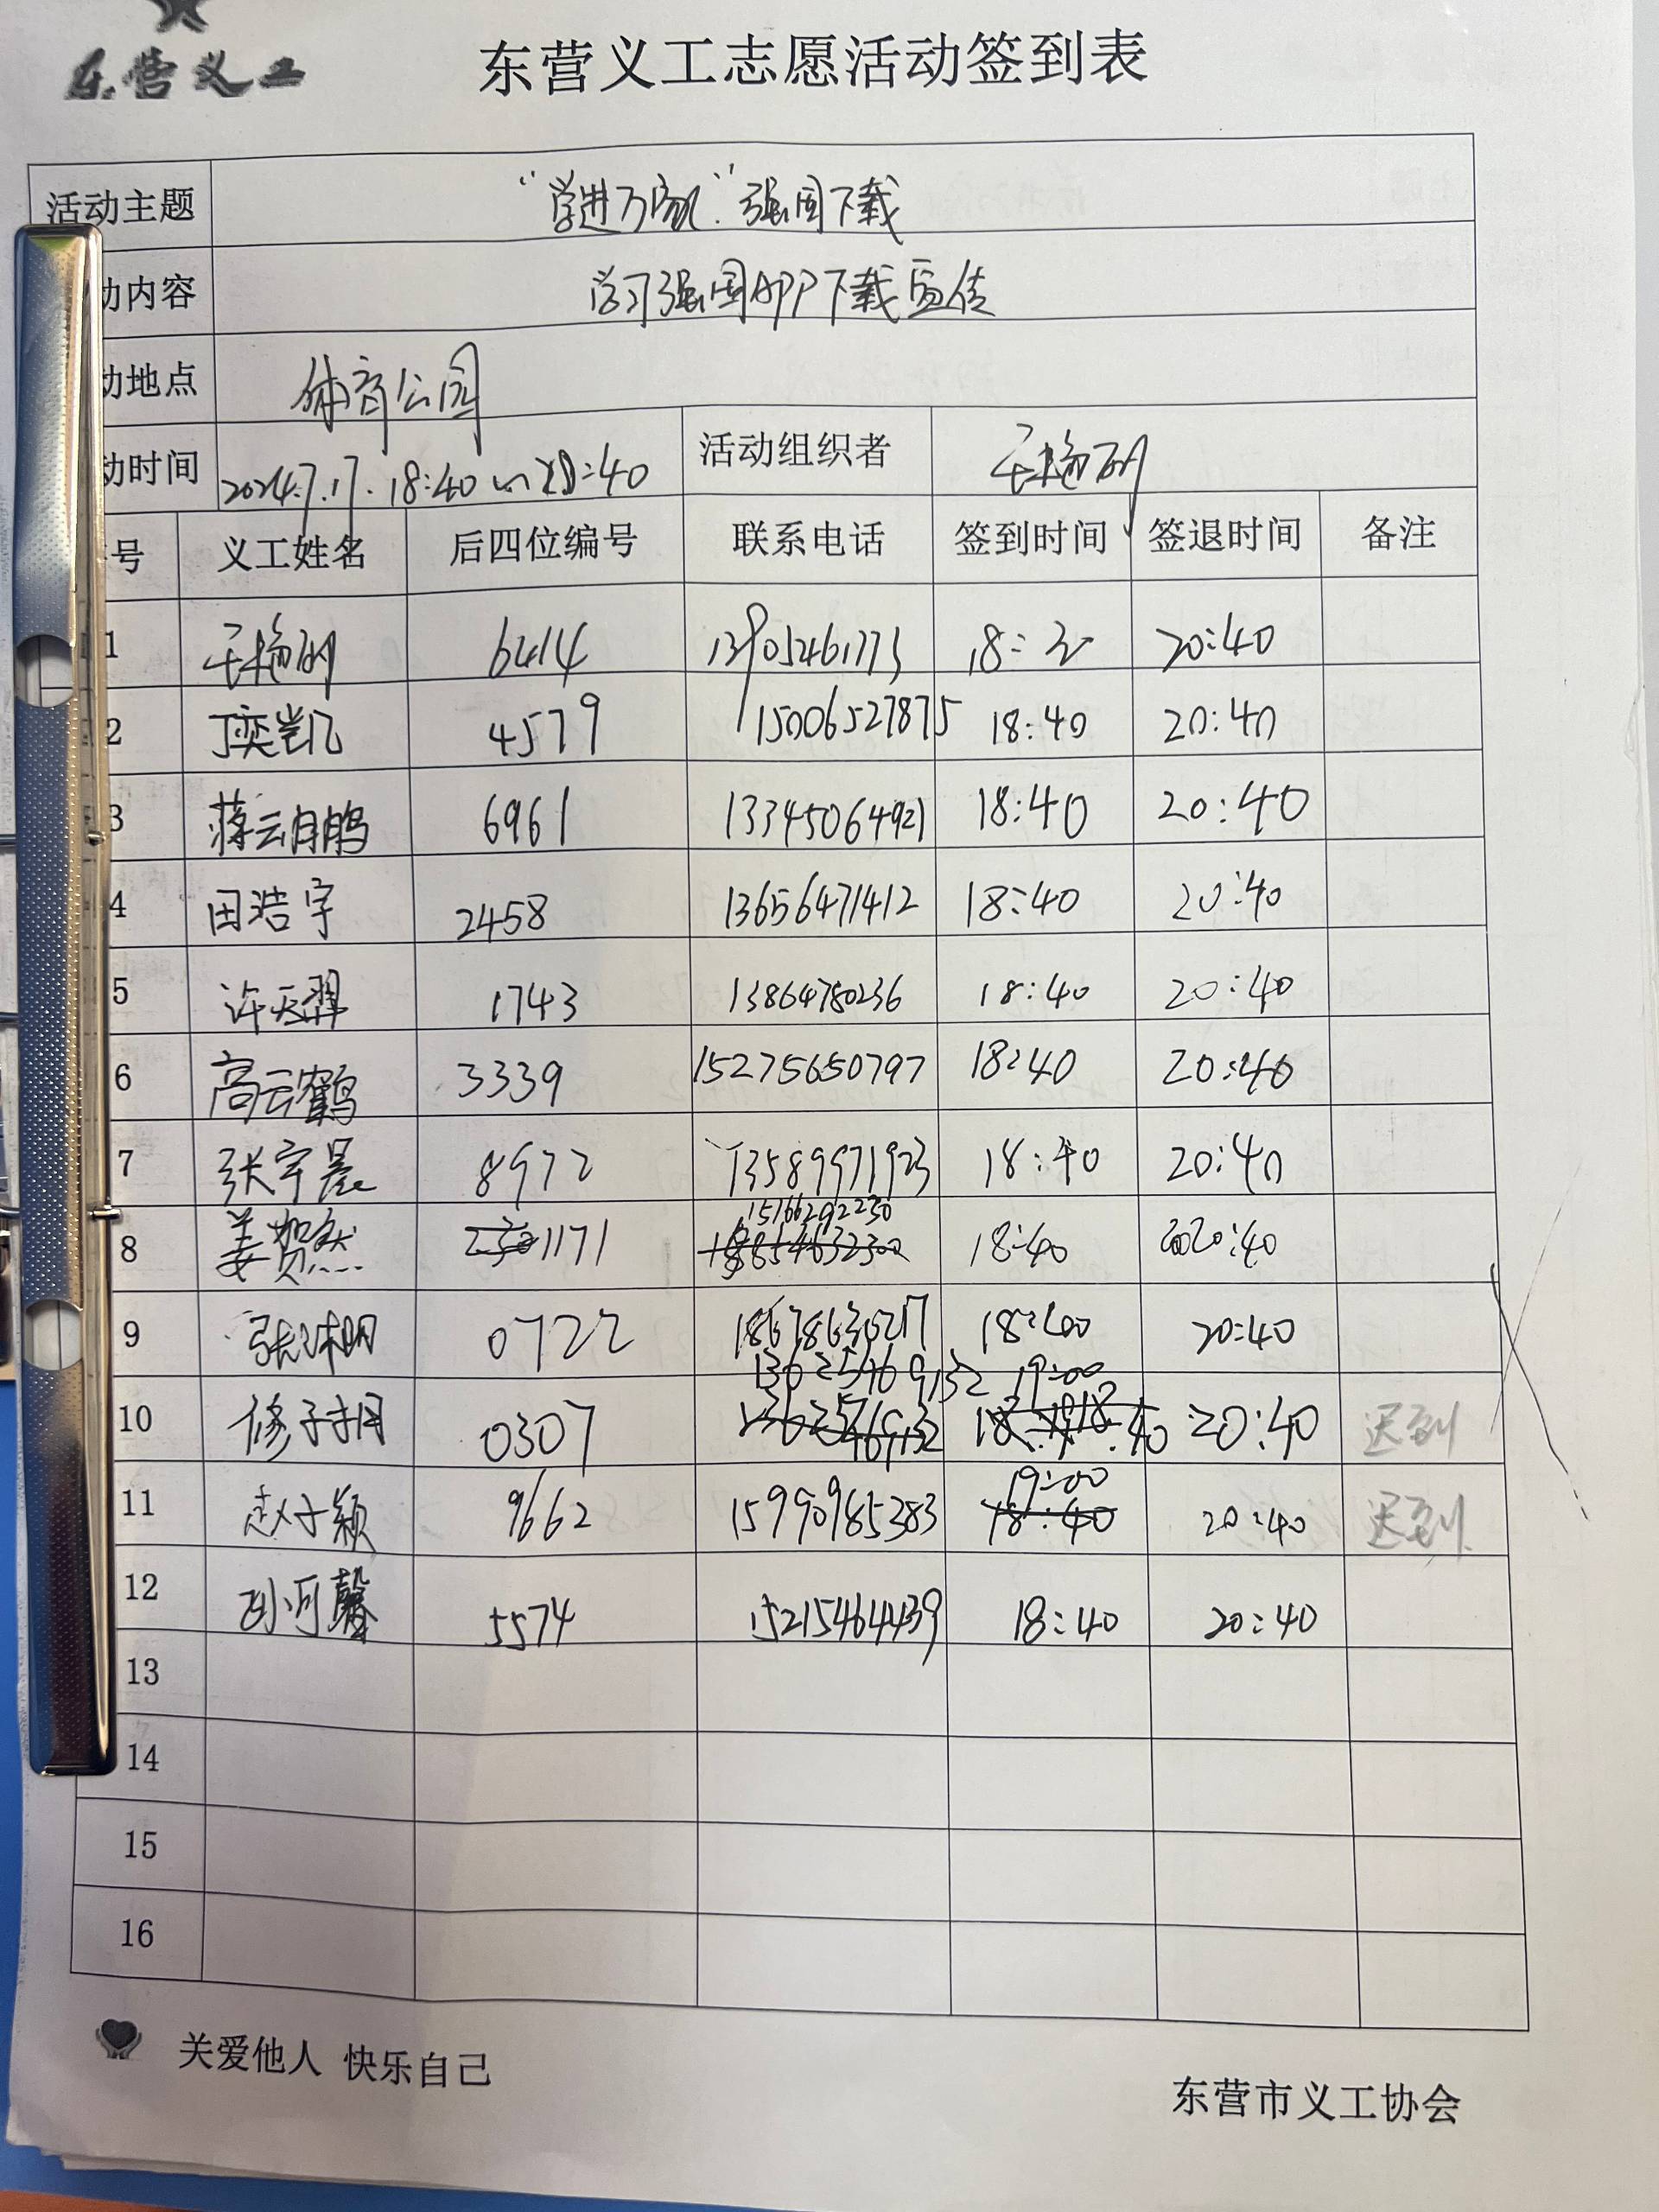 东营义工
东营义工志愿活动签到表
活动主题 “学进万家”强国下载
动内容 学习强国APP下载宣传
动地点 体育公园
动时间 2024.7.17. 18:40 :40 活动组织者
号 义工姓名 后四位编号 联系电话 签到时间 签退时间 备注
1 6414 13905461773 18: 20:40
2 丁奕凯 4579 15006527875 18:40 20:40
3 蒋云鹏 6961 13345064921 18:40 20:40
4 田浩宇 2458 13656471412 18:40 20:40
5 许天翔 1743 13864780236 18:40 20:40
6 高云鹤 3339 15275650797 18:40 20:40
7 张宇晨 8972 13589971923 18:40 20:40
8 姜贺然 1171 15166292230 18:40 20:40
9 0722 18678630217 20:40
10 修子玥 0307 13625469132 19:00 20:40 迟到
11 赵子颖 9662 15990985383 19:00 20:40 迟到
12 孙可馨 5574 15215464439 18:40 20:40
13
14
15
16
关爱他人 快乐自己
东营市义工协会